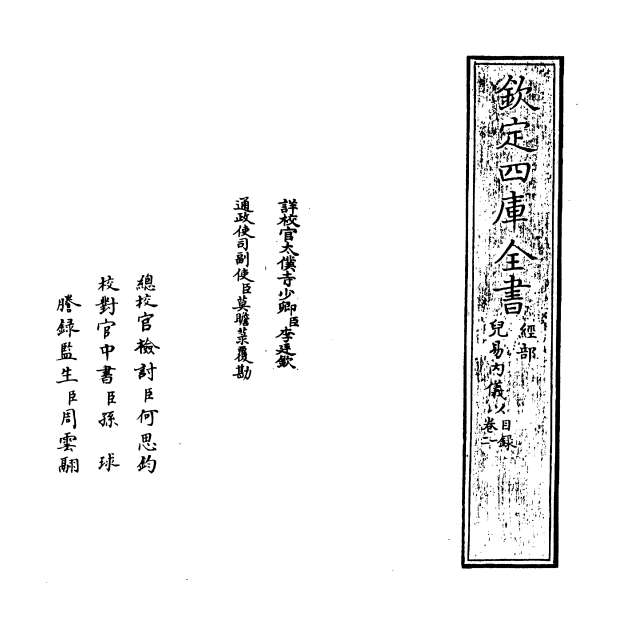 欽定四庫全書
經部
兒易内儀以
目録
卷二
詳校官太僕寺少卿臣李廷欽
通政使司副使臣莫瞻菉覆勘
總校官檢討臣何思鈞
校對官中書臣孫球
謄録監生臣周雲翮